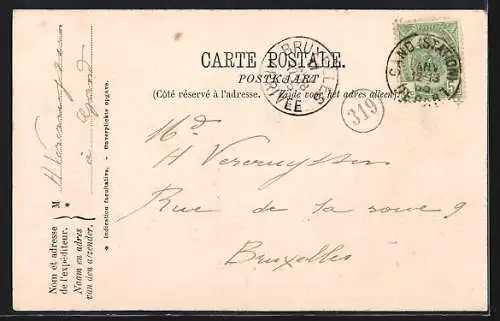 CARTE POSTALE.
POSTKAART
(Côté réservé à l'adresse. — Zijde voor het adres alleen.)
BRUXELLES
ARRIVÉE
GAND (STATION)
DEPART
319
Md
H Vercruyssen
Rue de la roue 9
Bruxelles
M
à Gand
* Indication facultative. - Onverplichte opgave.
Nom et adresse
de l'expéditeur.
Naam en adres
van den afzender.